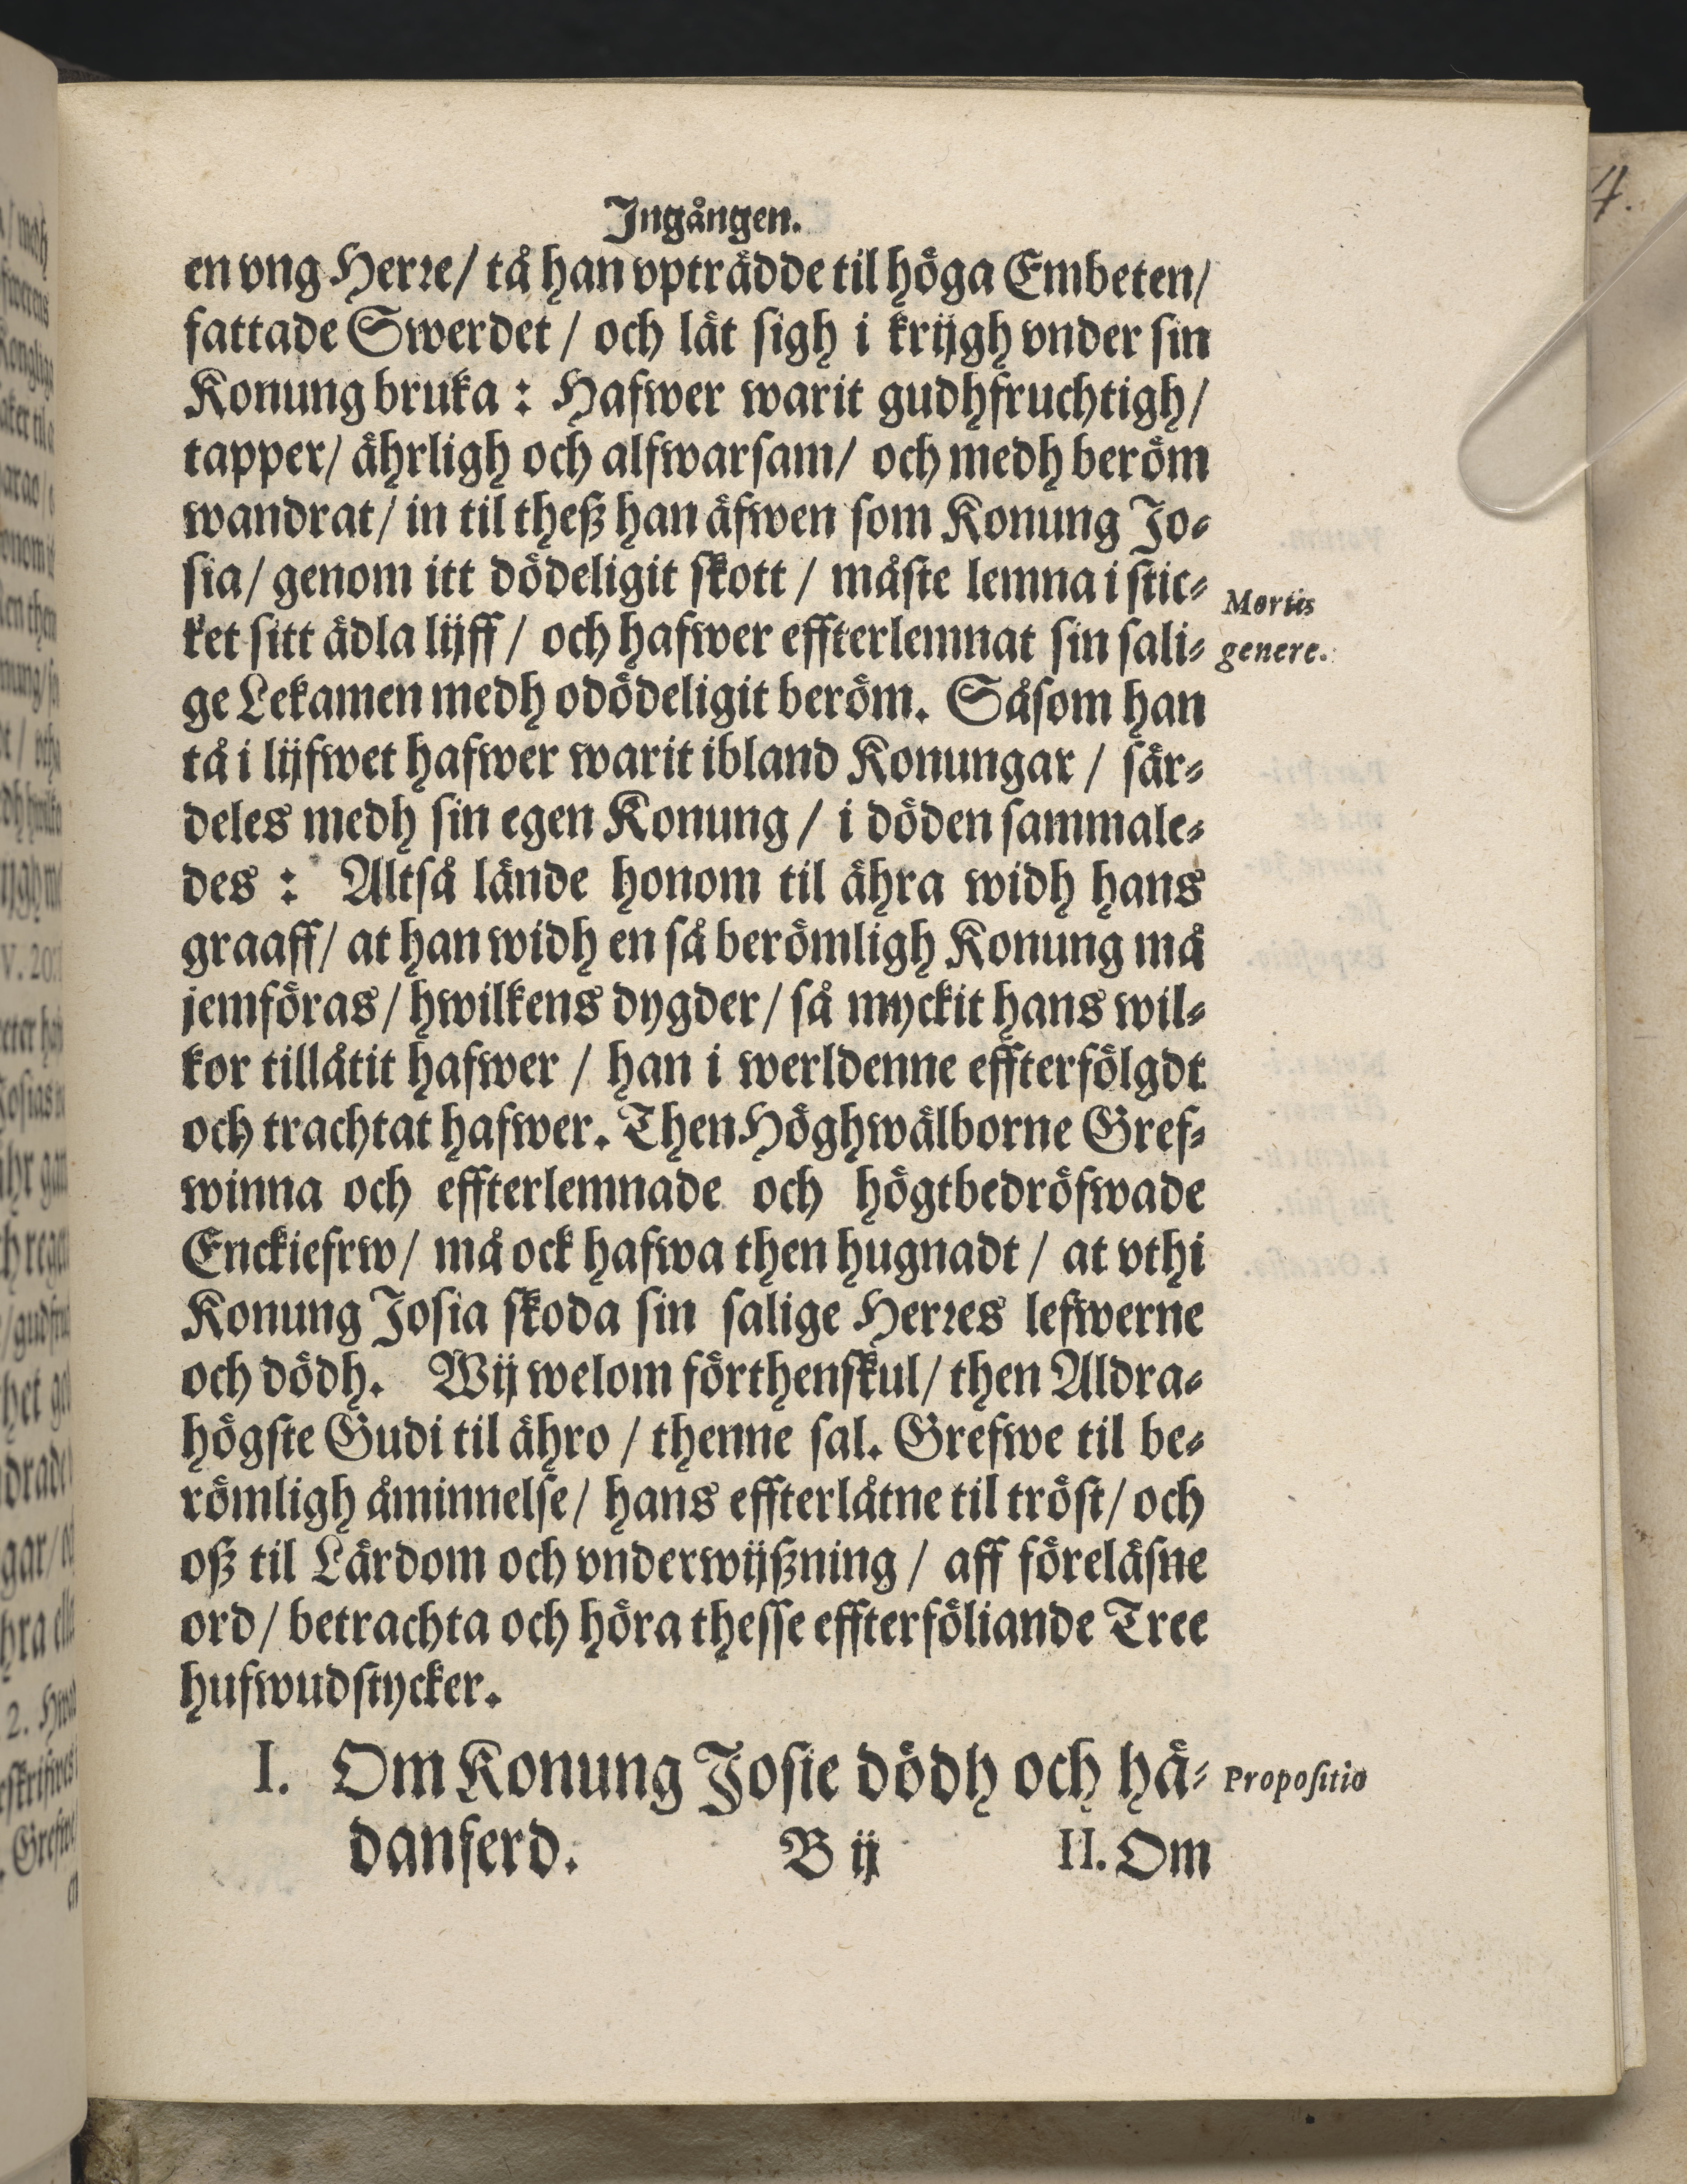 Ingången.
en vng Herre/ tå han vpträdde til höga Embeten/
fattade Swerdet / och lät sigh i krijgh vnder sin
Konung bruka : Hafwer warit gudhfruchtigh/
tapper/ ährligh och alfwarsam/ och medh beröm
wandrat/ in til theß han äfwen som Konung Jo-
sia/ genom itt dödeligit skott / måste lemna i stic-
Mortis
ket sitt ädla lijff / och hafwer effterlemnat sin sali-
genere.
ge Lekamen medh odödeligit beröm. Såsom han
tå i lijfwet hafwer warit ibland Konungar / sär-
deles medh sin egen Konung / i döden sammale-
des : Altså lände honom til ähra widh hans
graaff/ at han widh en så berömligh Konung må
jemföras/ hwilkens dygder/ så myckit hans wil-
kor tillåtit hafwer / han i werldenne effterfölgdt
och trachtat hafwer. Then Höghwälborne Gref-
winna och effterlemnade och högtbedröfwade
Enckiefrw/ må ock hafwa then hugnadt / at vthi
Konung Josia skoda sin salige Herres lefwerne
och dödh. Wij welom förthenskul/ then Aldra-
högste Gudi til ähro / thenne sal. Grefwe til be-
römligh åminnelse/ hans effterlåtne til tröst/ och
oß til Lärdom och vnderwijßning / aff föreläsne
ord/ betrachta och höra thesse effterföliande Tree
hufwudstycker.
I. Om Konung Josie dödh och hä-
Propositio
danferd. B ij II. Om
4.